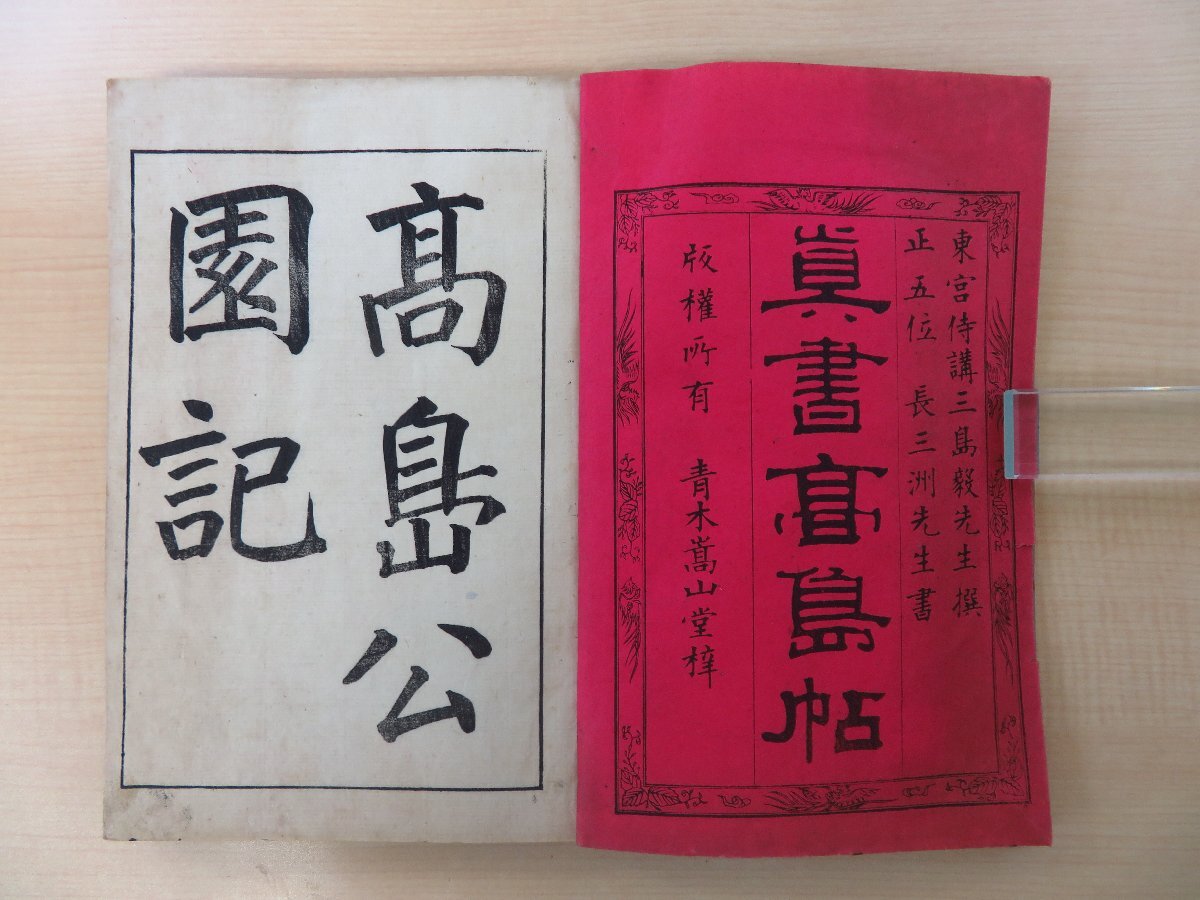 東宮侍講三島毅先生撰
正五位 長三洲先生書
眞書高島帖
版權所有 青木嵩山堂梓
高島公
園記